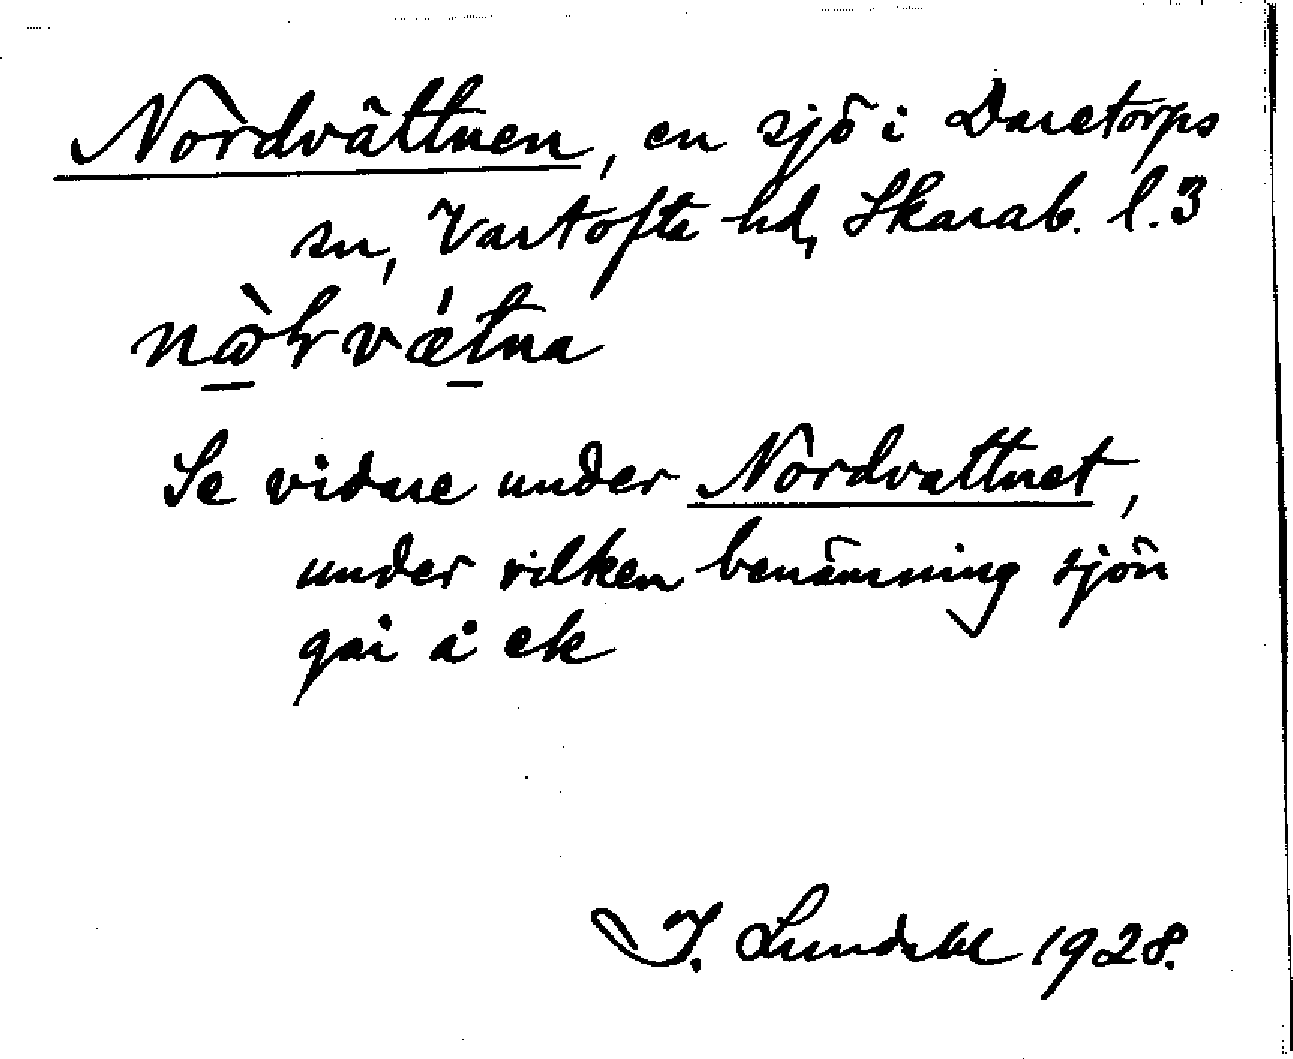 Nordvättnen, en sjö i Daretorps
sn, Vartofta hd, Skarab. l. 3
nàhrvǽtna
Se vidare under Nordvattnet,
under vilken benämning sjön
går å ek
I. Lundahl 1928.